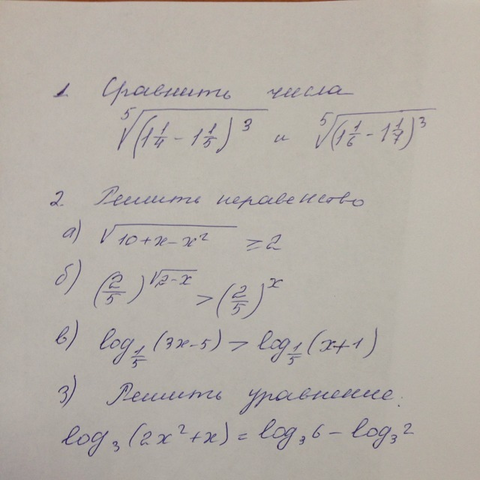 1. Сравнить числа
⁵√(1 1/4 - 1 1/5)³ и ⁵√(1 1/6 - 1 1/7)³
2. Решить неравенство
а) √10+x-x² ≥ 2
б) (2/5)^√2-x > (2/5)^x
в) log_1/5 (3x-5) > log_1/5 (x+1)
3) Решить уравнение:
log₃(2x²+x) = log₃6 - log₃2